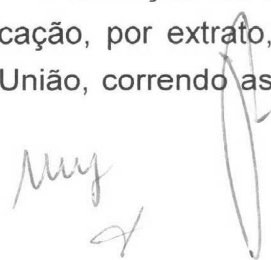 cação, por extrato,
União, correndo as